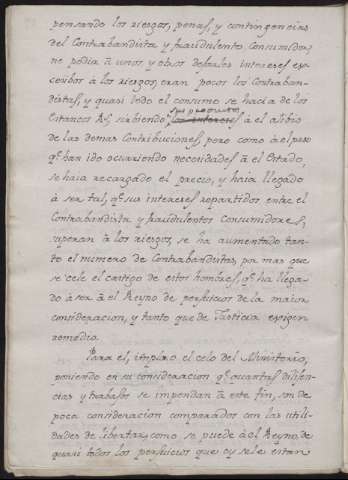 pensando los riesgos, penas, y contingencias
del Contrabandista y fraudulento Consumidor,
ne podia à unos, y otros dexarles intereses ex-
cesivos à los riesgos, eran pocos los Contraban-
distas, y quasi todo el consumo se hacia de los
Estancos Rs, sirbiendo, sus productos à el alibio
de las demas Contribuciones, pero como à el paso
qe han ido ocurriendo necesidades à el Estado,
se haia recargado el precio, y haia llegado
à ser tal, qe sus intereses repartidos entre el
Contrabandista y fraudulentos consumidores,
superan à los riesgos, se ha aumentado tan-
to el numero de Contrabandistas, por mas que
se cele el castigo de estos hombres, qe ha llega-
do à ser à el Reyno de perjuicios de la maior
consideracion, y tanto que de Justicia exigen
remedio.
Para el, imploro el celo del Ministerio,
poniendo en su consideracion qe quantas diligen-
cias y trabajos se impendan à este fin, son de
poca consideracion comparados con las utili-
dades de libertar, como se puede à el Reyno, de
quasi todos los perjuicios que oy se le estan